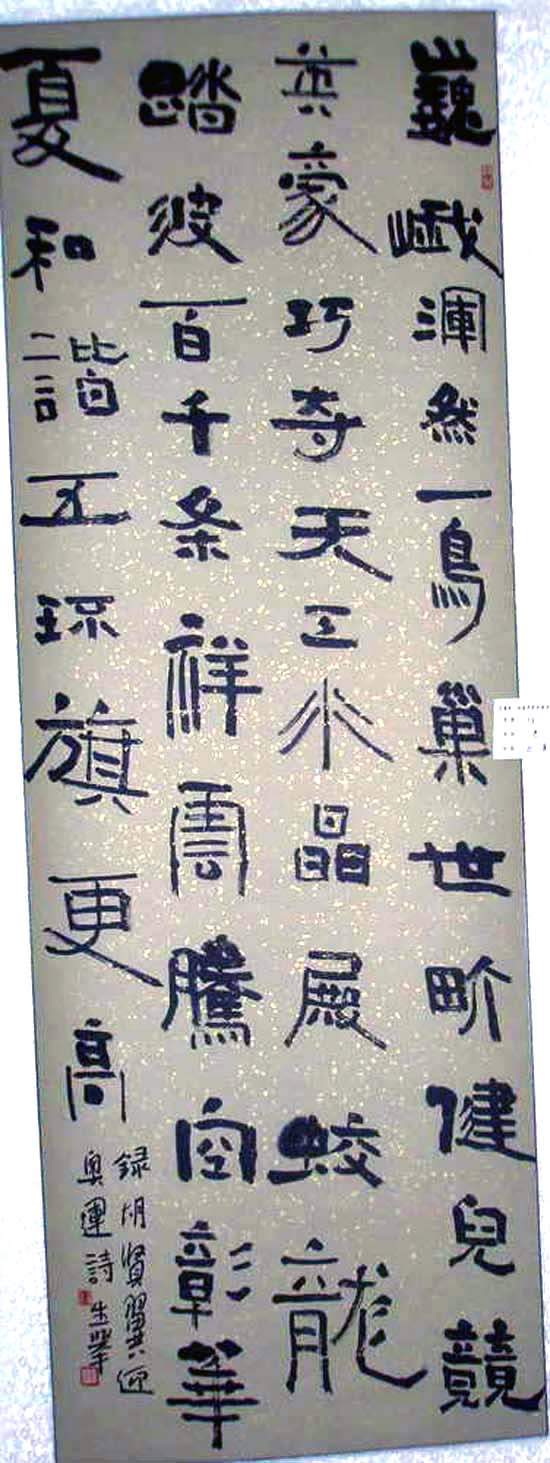 巍峨渾然一鳥巢世畍健兒競
英豪巧夺天工水晶殿蛟龍
踏波百千条祥雲騰空彰華
夏和諧五环旗更高
録胡賢迎
奥運詩